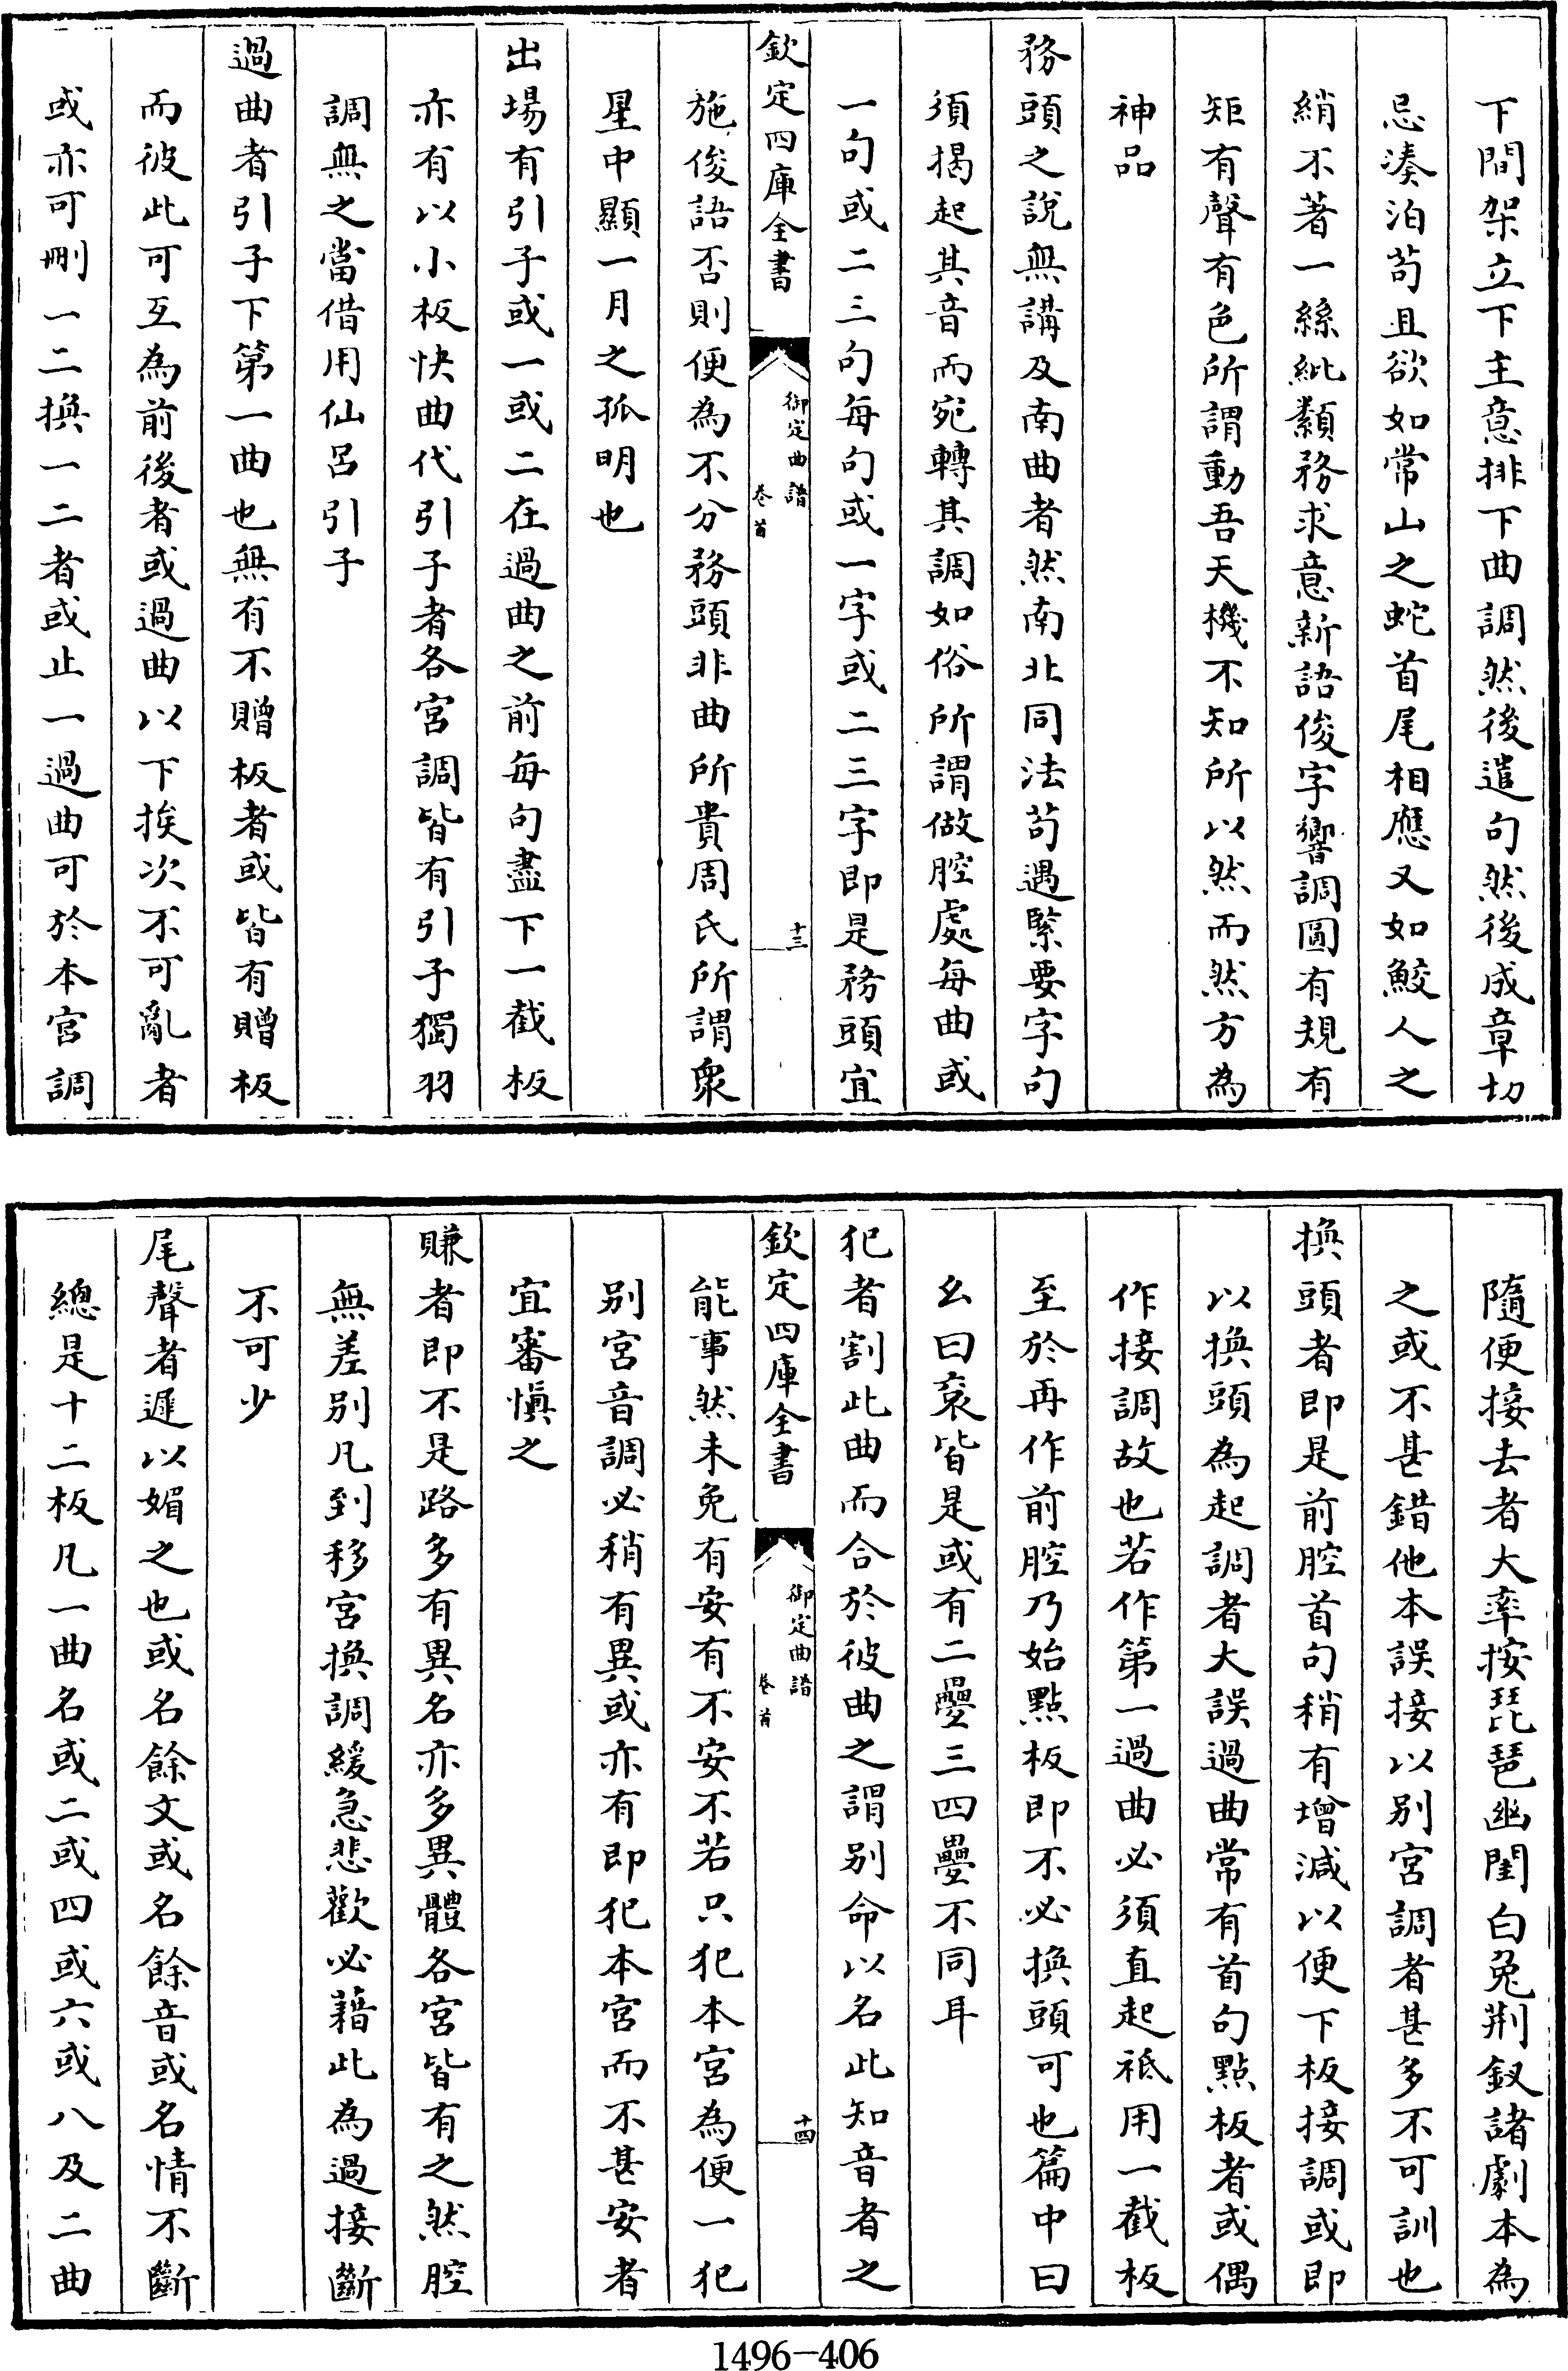 下間架立下主意排下曲調然後遣句然後成章切
忌湊泊苟且欲如常山之蛇首尾相應又如鮫人之
綃不著一絲紕纇務求意新語俊字響調圓有規有
矩有聲有色所謂動吾天機不知所以然而然方為
神品
務頭之說無講及南曲者然南北同法苟遇緊要字句
須揭起其音而宛轉其調如俗所謂做腔處每曲或
一句或二三句每句或一字或二三字即是務頭宜
欽定四庫全書
御定曲譜
卷首
十三
施俊語否則便為不分務頭非曲所貴周氏所謂衆
星中顯一月之孤明也
出場有引子或一或二在過曲之前每句盡下一截板
亦有以小板快曲代引子者各宮調皆有引子獨羽
調無之當借用仙呂引子
過曲者引子下第一曲也無有不贈板者或皆有贈板
而彼此可互為前後者或過曲以下挨次不可亂者
或亦可刪一二換一二者或止一過曲可於本宮調
隨便接去者大率按琵琶幽閨白兔荆釵諸劇本為
之或不甚錯他本誤接以别宮調者甚多不可訓也
換頭者即是前腔首句稍有增減以便下板接調或即
以換頭為起調者大誤過曲常有首句點板者或偶
作接調故也若作第一過曲必須直起祗用一截板
至於再作前腔乃始點板即不必換頭可也篇中曰
幺曰衮皆是或有二疊三四疊不同耳
犯者割此曲而合於彼曲之謂别命以名此知音者之
欽定四庫全書
御定曲譜
卷首
十四
能事然未免有安有不安不若只犯本宮為便一犯
别宮音調必稍有異或亦有即犯本宮而不甚安者
宜審慎之
賺者即不是路多有異名亦多異體各宮皆有之然腔
無差别凡到移宮換調緩急悲歡必藉此為過接斷
不可少
尾聲者遲以媚之也或名餘文或名餘音或名情不斷
總是十二板凡一曲名或二或四或六或八及二曲
1496-406